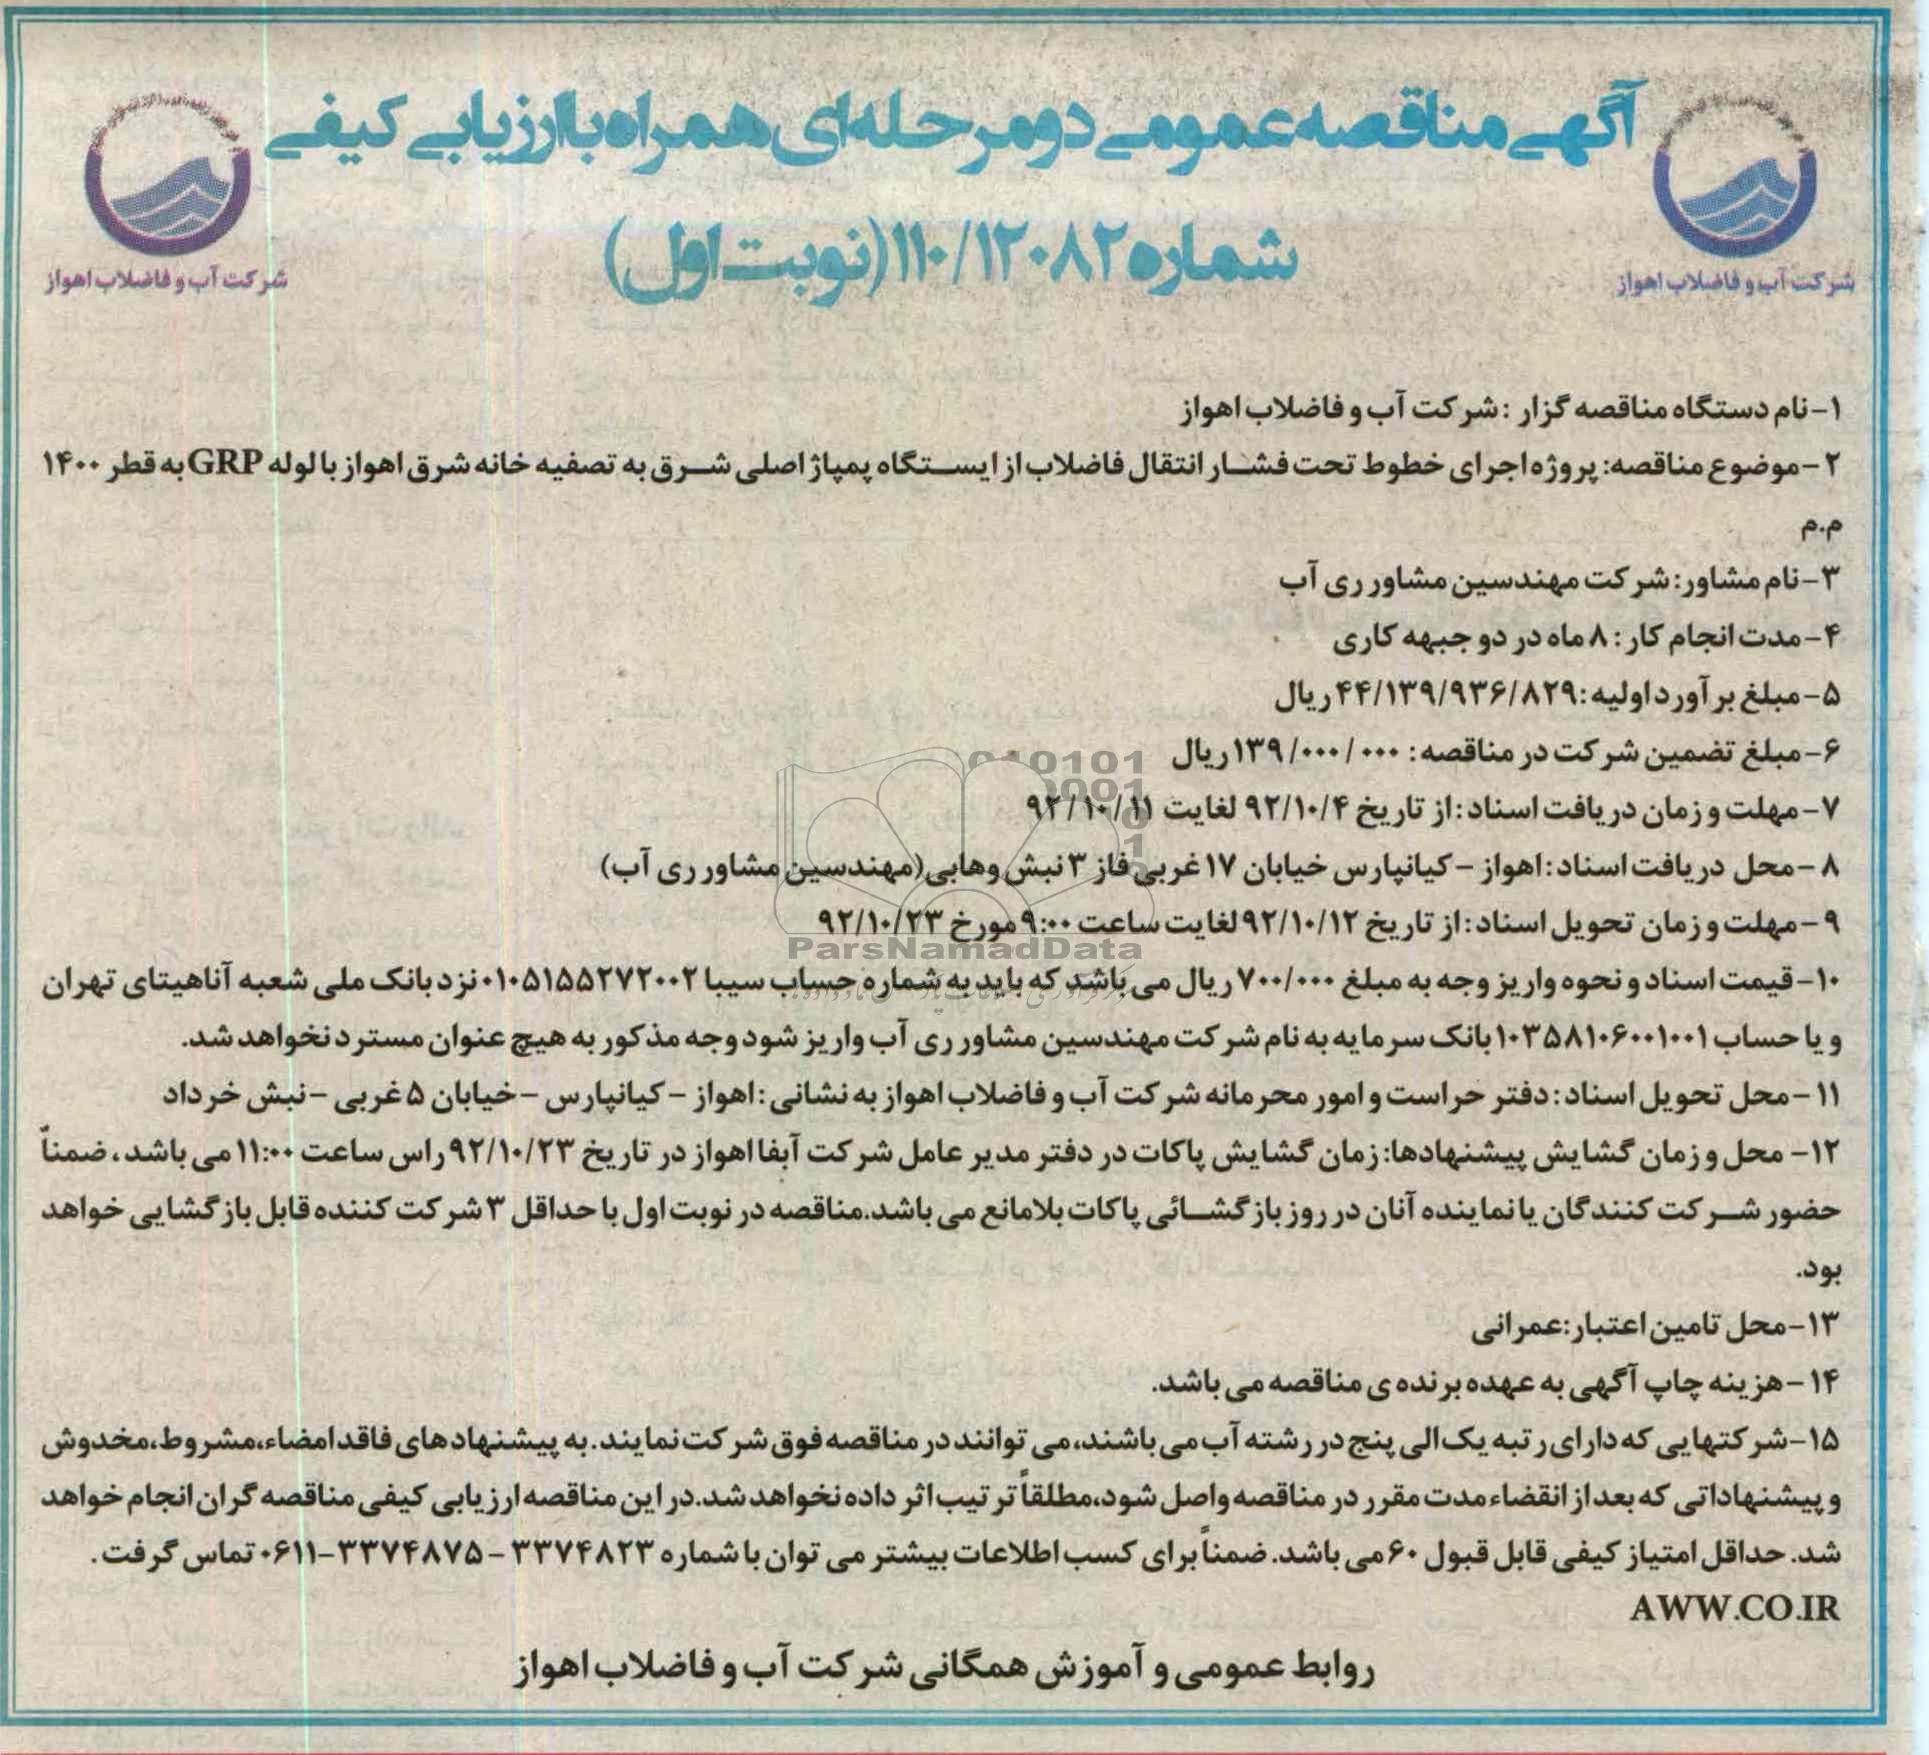 آگهی مناقصه عمومی دو مرحله‌ای همراه با ارزیابی کیفی
شماره ۱۱۰/۱۲۰۸۲ (نوبت اول)
شرکت آب و فاضلاب اهواز
شرکت آب و فاضلاب اهواز
۱- نام دستگاه مناقصه گزار : شرکت آب و فاضلاب اهواز
۲- موضوع مناقصه: پروژه اجرای خطوط تحت فشار انتقال فاضلاب از ایستگاه پمپاژ اصلی شرق به تصفیه خانه شرق اهواز با لوله GRP به قطر ۱۴۰۰
م.م
۳- نام مشاور: شرکت مهندسین مشاور ری آب
۴- مدت انجام کار : ۸ ماه در دو جبهه کاری
۵- مبلغ برآورد اولیه: ۴۴/۱۳۹/۹۳۶/۸۲۹ ریال
۶- مبلغ تضمین شرکت در مناقصه : ۱۳۹/۰۰۰/۰۰۰ ریال
۷- مهلت و زمان دریافت اسناد : از تاریخ ۹۲/۱۰/۴ لغایت ۹۲/۱۰/۱۱
۸- محل دریافت اسناد : اهواز - کیانپارس خیابان ۱۷ غربی فاز ۳ نبش وهابی (مهندسین مشاور ری آب)
۹- مهلت و زمان تحویل اسناد : از تاریخ ۹۲/۱۰/۱۲ لغایت ساعت ۹:۰۰ مورخ ۹۲/۱۰/۲۳
ParsNamadData
۱۰- قیمت اسناد و نحوه واریز وجه به مبلغ ۷۰۰/۰۰۰ ریال می باشد که باید به شماره حساب سیبا ۰۱۰۵۱۵۵۲۷۲۰۰۲ نزد بانک ملی شعبه آناهیتای تهران
و یا حساب ۱۰۳۵۸۱۰۶۰۰۱۰۰۱ بانک سرمایه به نام شرکت مهندسین مشاور ری آب واریز شود وجه مذکور به هیچ عنوان مسترد نخواهد شد.
۱۱- محل تحویل اسناد : دفتر حراست و امور محرمانه شرکت آب و فاضلاب اهواز به نشانی : اهواز - کیانپارس - خیابان ۵ غربی - نبش خرداد
۱۲- محل و زمان گشایش پیشنهادها: زمان گشایش پاکات در دفتر مدیر عامل شرکت آبفا اهواز در تاریخ ۹۲/۱۰/۲۳ راس ساعت ۱۱:۰۰ می باشد ، ضمناً
حضور شرکت کنندگان یا نماینده آنان در روز بازگشائی پاکات بلامانع می باشد. مناقصه در نوبت اول با حداقل ۳ شرکت کننده قابل بازگشایی خواهد
بود.
۱۳- محل تامین اعتبار: عمرانی
۱۴- هزینه چاپ آگهی به عهده برنده ی مناقصه می باشد.
۱۵- شرکتهایی که دارای رتبه یک الی پنج در رشته آب می باشند، می توانند در مناقصه فوق شرکت نمایند. به پیشنهادهای فاقد امضاء، مشروط، مخدوش
و پیشنهاداتی که بعد از انقضاء مدت مقرر در مناقصه واصل شود، مطلقاً ترتیب اثر داده نخواهد شد. در این مناقصه ارزیابی کیفی مناقصه گران انجام خواهد
شد. حداقل امتیاز کیفی قابل قبول ۶۰ می باشد. ضمناً برای کسب اطلاعات بیشتر می توان با شماره ۳۳۷۴۸۲۳ - ۳۳۷۴۸۷۵-۰۶۱۱ تماس گرفت .
AWW.CO.IR
روابط عمومی و آموزش همگانی شرکت آب و فاضلاب اهواز